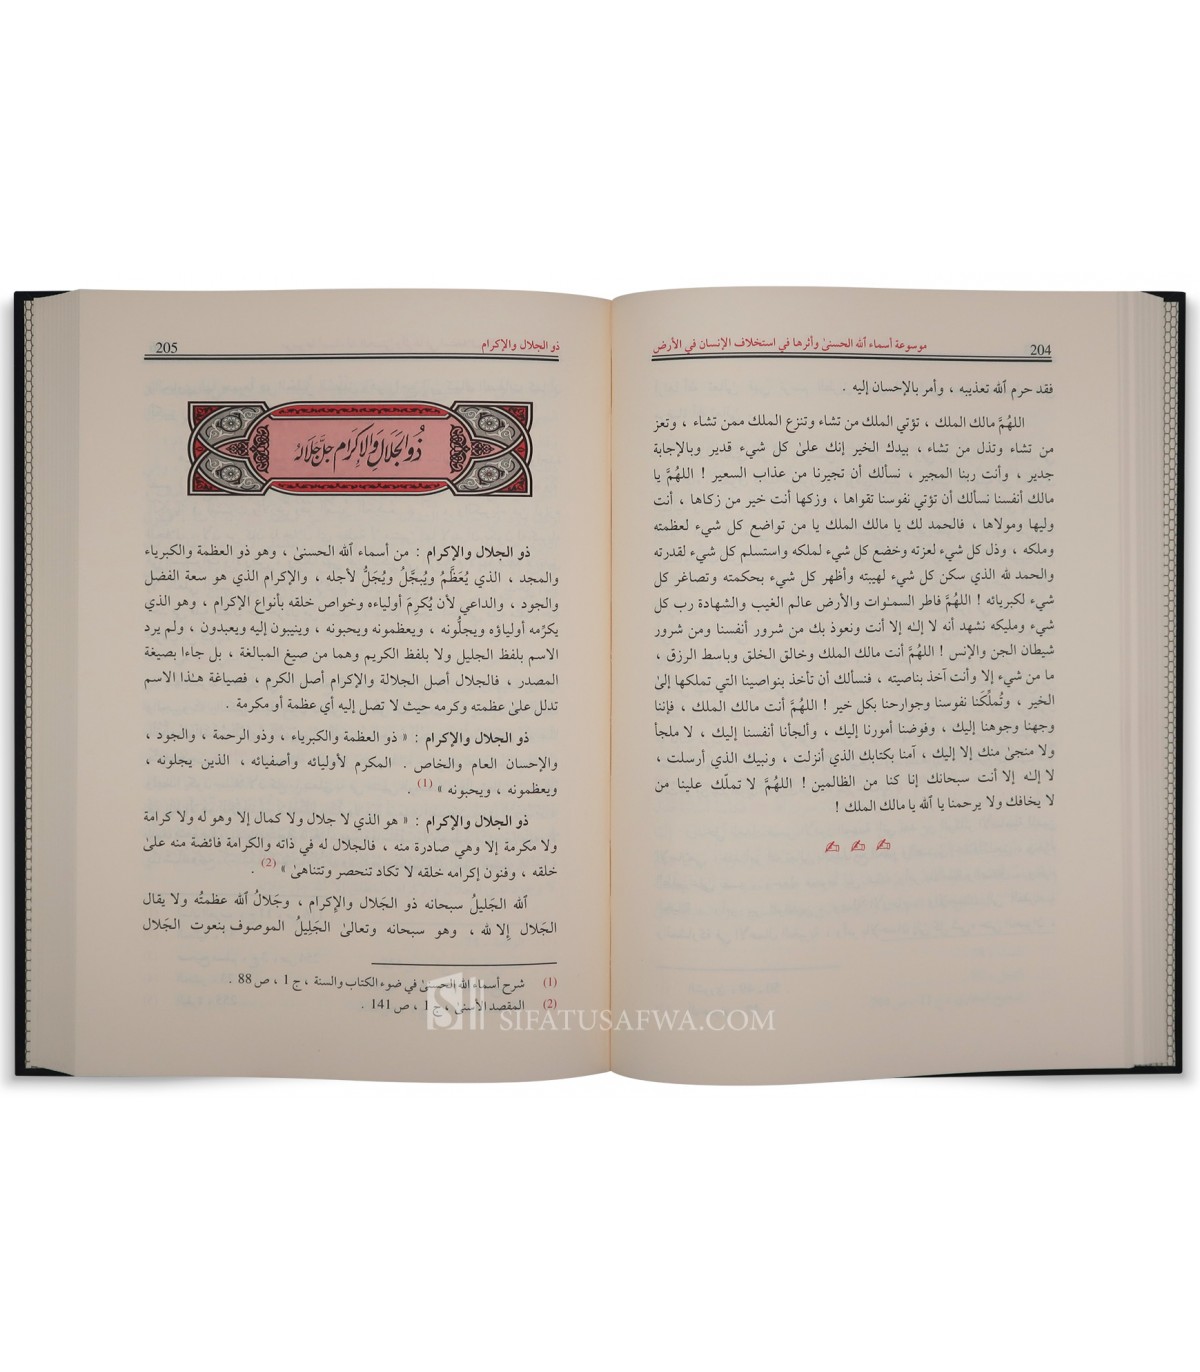 204
موسوعة أسماء الله الحسنىٰ وأثرها في استخلاف الإنسان في الأرض
فقد حرم الله تعذيبه ، وأمر بالإحسان إليه .
اللهُمَّ مالك الملك ، تؤتي الملك من تشاء وتنزع الملك ممن تشاء ، وتعز
من تشاء وتذل من تشاء ، بيدك الخير إنك علىٰ كل شيء قدير وبالإجابة
جدير ، وأنت ربنا المجير ، نسألك أن تجيرنا من عذاب السعير ! اللهُمَّ يا
مالك أنفسنا نسألك أن تؤتي نفوسنا تقواها ، وزكها أنت خير من زكاها ، أنت
وليها ومولاها ، فالحمد لك يا مالك الملك يا من تواضع كل شيء لعظمته
وملكه ، وذل كل شيء لعزته وخضع كل شيء لملكه واستسلم كل شيء لقدرته
والحمد لله الذي سكن كل شيء لهيبته وأظهر كل شيء بحكمته وتصاغر كل
شيء لكبريائه ! اللهُمَّ فاطر السمـٰوات والأرض عالم الغيب والشهادة رب كل
شيء ومليكه نشهد أنه لا إلـٰه إلا أنت ونعوذ بك من شرور أنفسنا ومن شرور
شيطان الجن والإنس ! اللهُمَّ أنت مالك الملك وخالق الخلق وباسط الرزق ،
ما من شيء إلا وأنت آخذ بناصيته ، فنسألك أن تأخذ بنواصينا التي تملكها إلىٰ
الخير ، وتُملِّكَنا نفوسنا وجوارحنا بكل خير ! اللهُمَّ أنت مالك الملك ، فإننا
وجهنا وجوهنا إليك ، وفوضنا أمورنا إليك ، وألجأنا أنفسنا إليك ، لا ملجأ
ولا منجىٰ منك إلا إليك ، آمنا بكتابك الذي أنزلت ، ونبيك الذي أرسلت ،
لا إلـٰه إلا أنت سبحانك إنا كنا من الظالمين ! اللهُمَّ لا تملّك علينا من
لا يخافك ولا يرحمنا يا الله يا مالك الملك !
ذو الجلال والإكرام
205
ذُو الجَلَالِ وَالإِكْرَام جَلَّ جَلَالُهُ
ذو الجلال والإكرام : من أسماء الله الحسنىٰ ، وهو ذو العظمة والكبرياء
والمجد ، الذي يُعَظَّمُ ويُبجَّلُ ويُجَلُّ لأجله ، والإكرام الذي هو سعة الفضل
والجود ، والداعي لأن يُكرِمَ أولياءه وخواص خلقه بأنواع الإكرام ، وهو الذي
يكرِّمه أولياؤه ويجلُّونه ، ويعظمونه ويحبونه ، وينيبون إليه ويعبدون ، ولم يرد
الاسم بلفظ الجليل ولا بلفظ الكريم وهما من صيغ المبالغة ، بل جاءا بصيغة
المصدر ، فالجلال أصل الجلالة والإكرام أصل الكرم ، فصياغة هـٰذا الاسم
تدلل علىٰ عظمته وكرمه حيث لا تصل إليه أي عظمة أو مكرمة .
ذو الجلال والإكرام : « ذو العظمة والكبرياء ، وذو الرحمة ، والجود ،
والإحسان العام والخاص . المكرم لأوليائه وأصفيائه ، الذين يجلونه ،
ويعظمونه ، ويحبونه » (1) .
ذو الجلال والإكرام : « هو الذي لا جلال ولا كمال إلا وهو له ولا كرامة
ولا مكرمة إلا وهي صادرة منه ، فالجلال له في ذاته والكرامة فائضة منه علىٰ
خلقه ، وفنون إكرامه خلقه لا تكاد تنحصر وتتناهىٰ » (2) .
الله الجَليلُ سبحانه ذو الجَلال والإكرام ، وجَلالُ الله عظمتُه ولا يقال
الجَلال إلا لله ، وهو سبحانه وتعالىٰ الجَلِيلُ الموصوف بنعوت الجَلال
(1) شرح أسماء الله الحسنىٰ في ضوء الكتاب والسنة ، ج 1 ، ص 88 .
(2) المقصد الأسنىٰ ، ج 1 ، ص 141 .
SIFATUSAFWA.COM